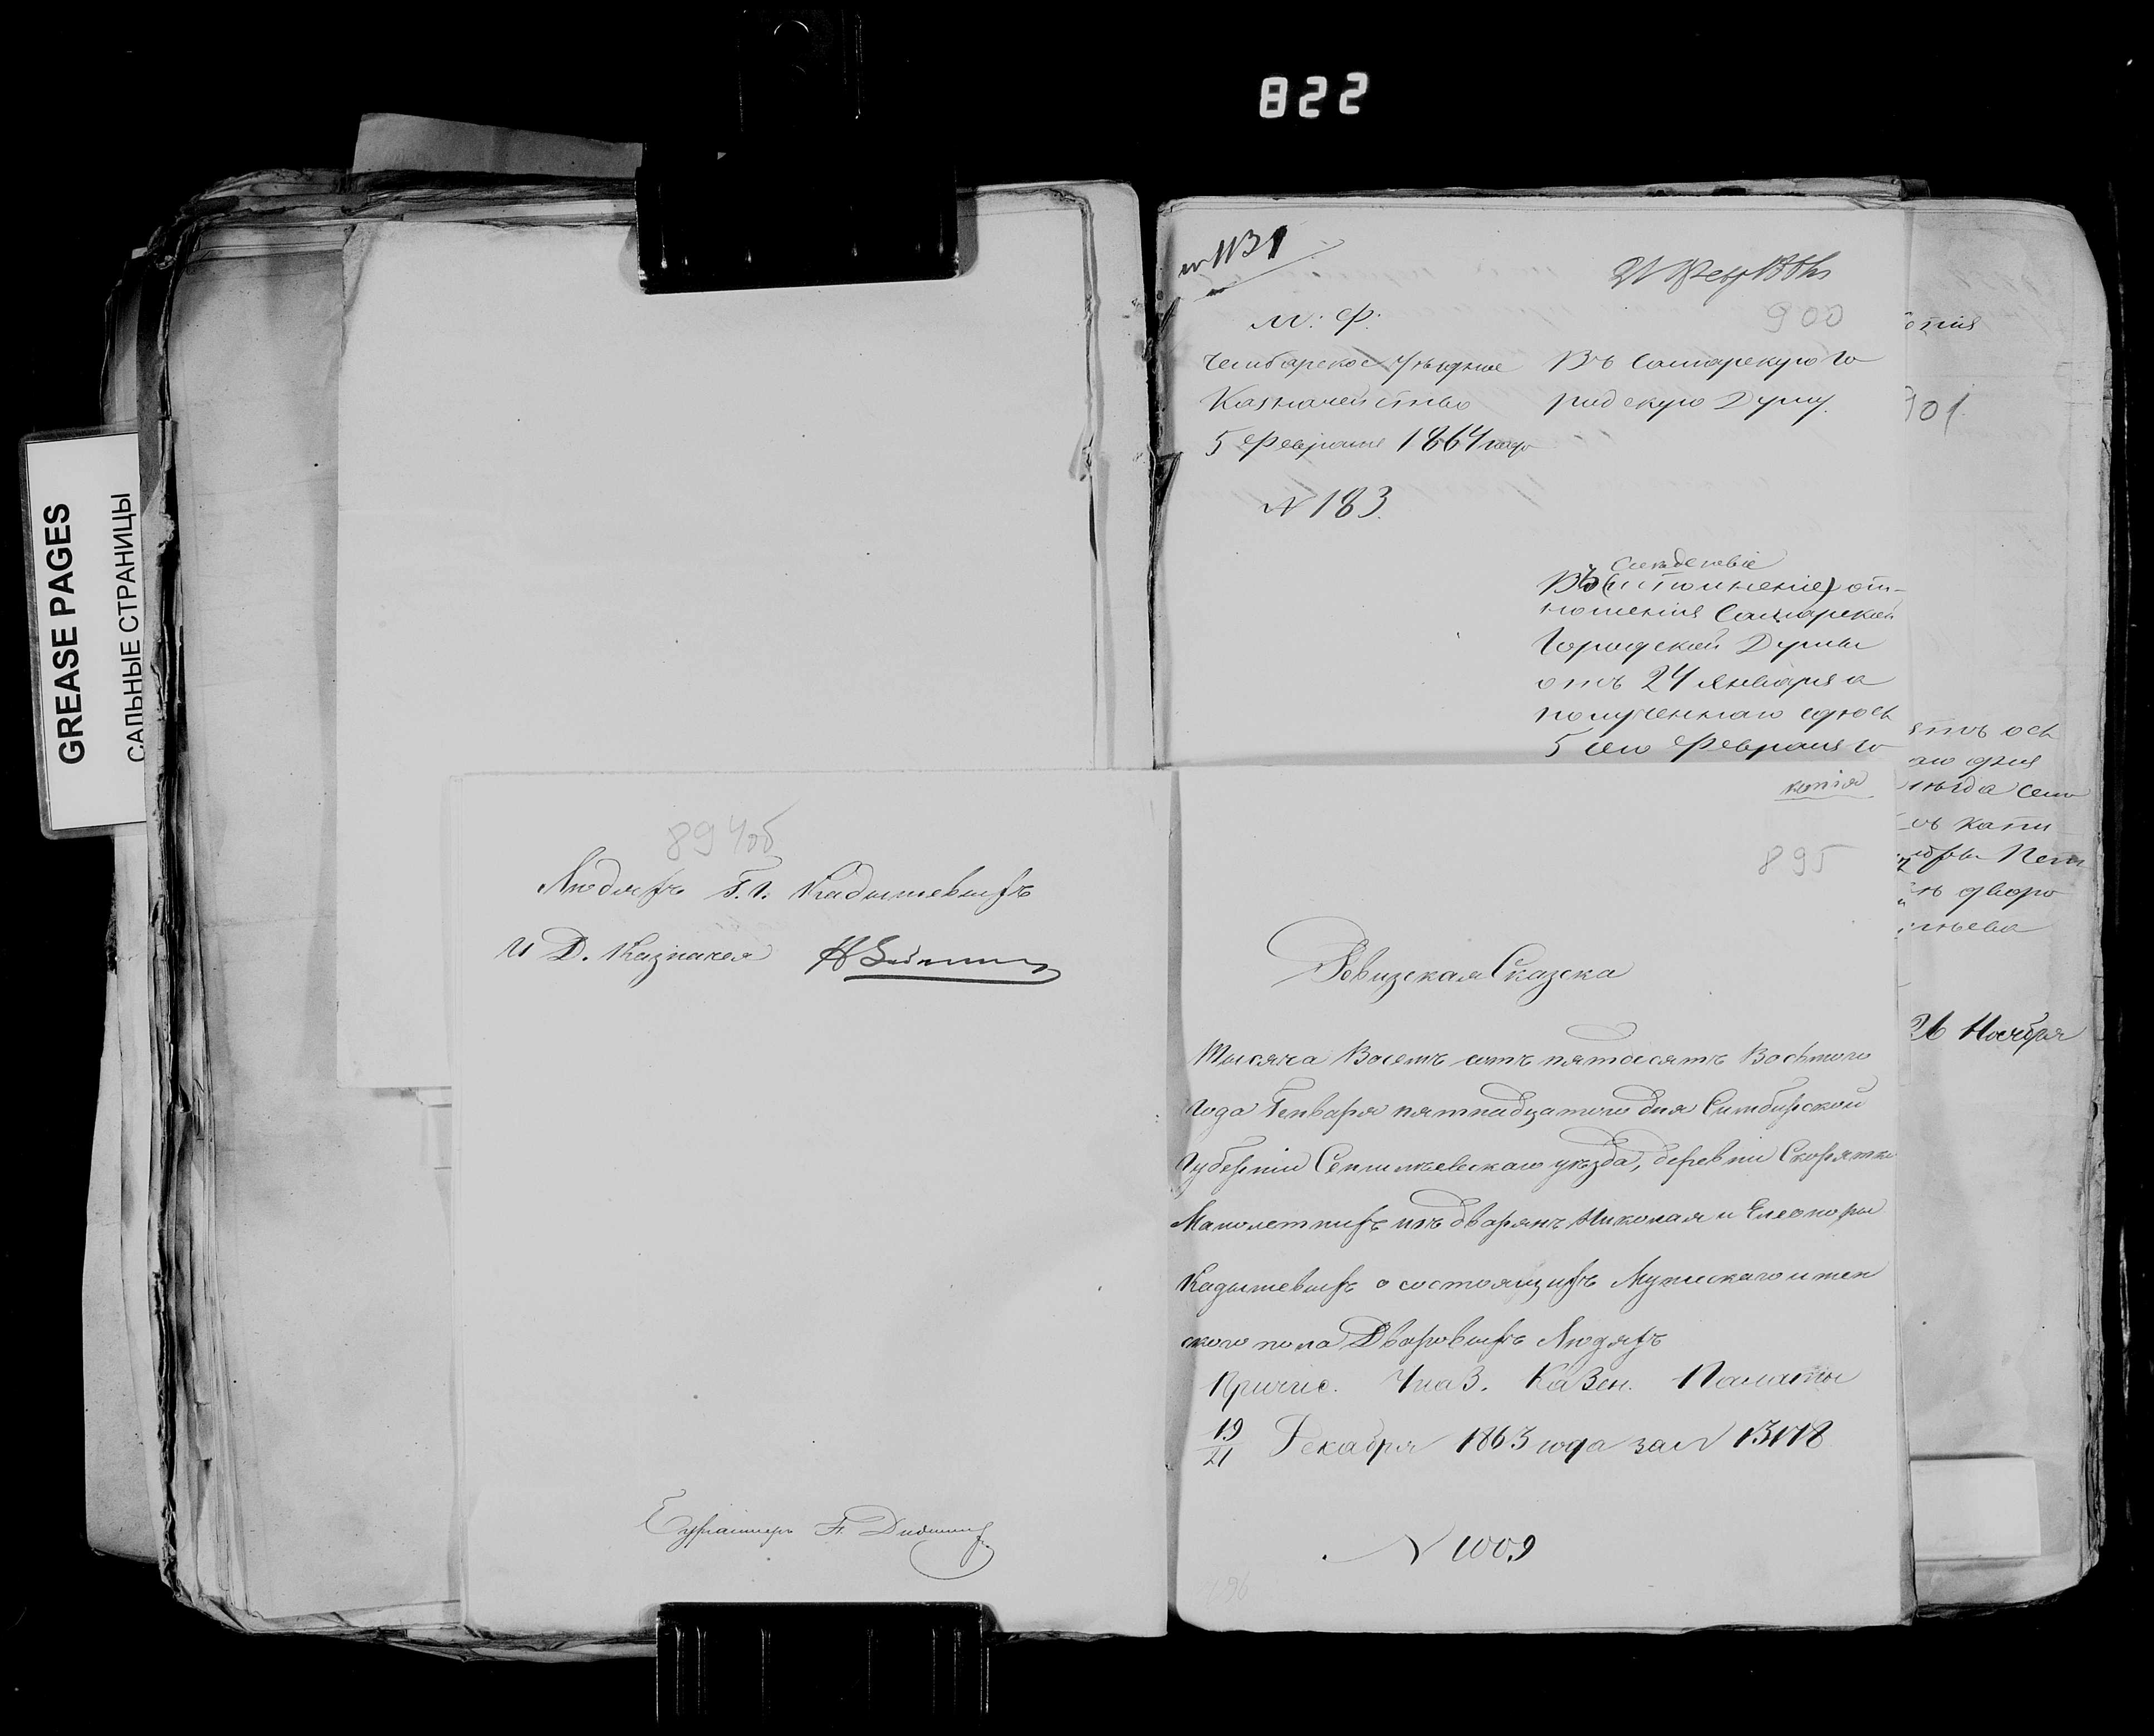 822
GREASE PAGES
САЛЬНЫЕ СТРАНИЦЫ
900
М: Ф:
Чембарское Уѣздное
Казначейство
5 Февраля 1864 года
N 183.
Въ Самарскую Го
родскую Думу.
Слѣдствіе
Въ (исполненіе) от-
ношенія Самарской
Городской Думы
отъ 24 Января а
полученнаго здѣсь
5 сего Февраля го
901
26 Ноября
894об
Людяхъ Г.г. Кадышевыхъ
И Д. Казначея
Бухгалтеръ
копія
895
Ревизская Сказка
Тысяча Восемь сотъ пятдесятъ Восьмого
Года Генваря пятнадцатого дня Симбирской
Губерніи Сенгилѣевскаго уѣзда, деревни
Малолетнихъ изъ дворянъ Николая и Елеоноры
Кадышевыхъ о состоящихъ Мужескаго и жен
ского пола Дворовыхъ Людяхъ
Причис. Указ. Казен. Палаты
19/21 Декабря 1863 года за N 13178
N 1009